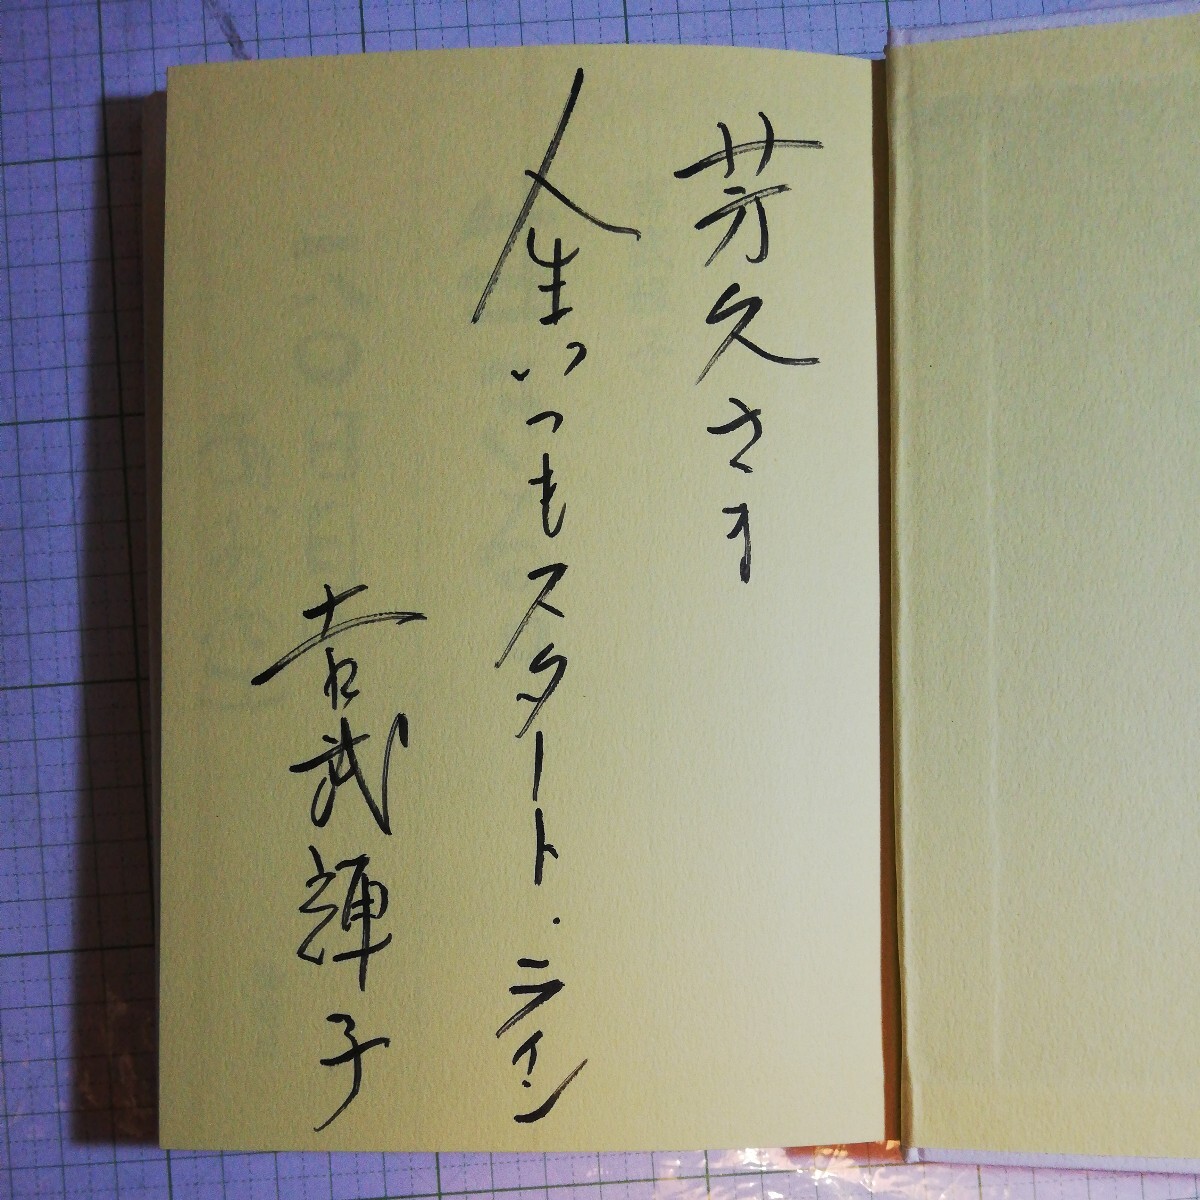 芳久さま
人生いつもスタート・ライン
吉武輝子